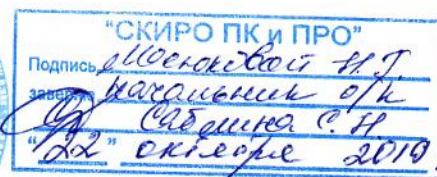 "СКИРО ПК и ПРО"
Подпись Мосюковой Н.Г.
заверяю начальник о/к
Саблина С.Н.
"22" октября 2019